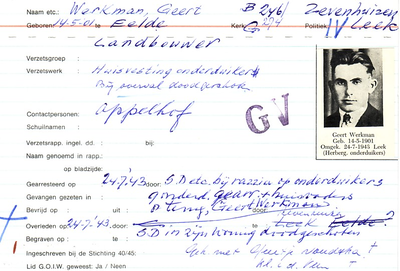 Naam etc.: Werkman, Geert B 246/ Zevenhuizen
Geboren: 14-5-01 te Eelde Kerk: G Politiek: Leek
Landbouwer
Verzetsgroep :
Verzetswerk : Huisvesting onderduikers
Bij overval doodgeschoten
Contactpersonen: Appelhof
GV
Schuilnamen :
Geert Werkman
Geb. 14-5-1901
Omgek. 24-7-1943 Leek
(Herberg. onderduikers)
Verzetsrapp. ingel. dd. : bij:
Naam genoemd in rapp.:
op bladzijde:
Gearresteerd op 24.7.43 door: S.D etc. bij razzia op onderduikers
Gevangen gezeten in : 9 onderd. gearr. + huisvaders
Bevrijd op : uit : P Terug, Geert Werkman
Zevenhuizen
Overleden op 24.7.43 door: te Leek Eelde?
Begraven op : te : S.D in zijn woning doodgeschoten
Ingeschreven bij de Stichting 40/45:
Lid G.O.I.W. geweest: Ja / Neen